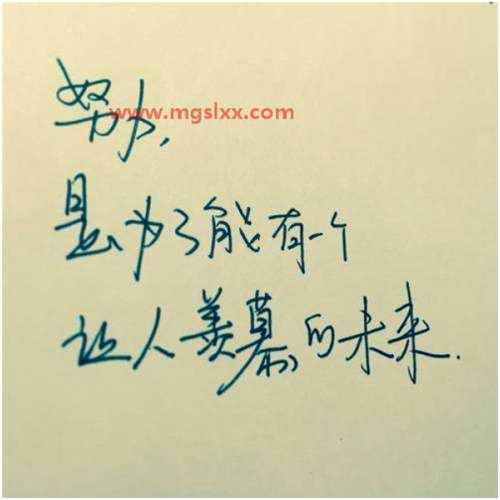 努力,
www.mgslxx.com
是为了能有一个
让人羡慕的未来.